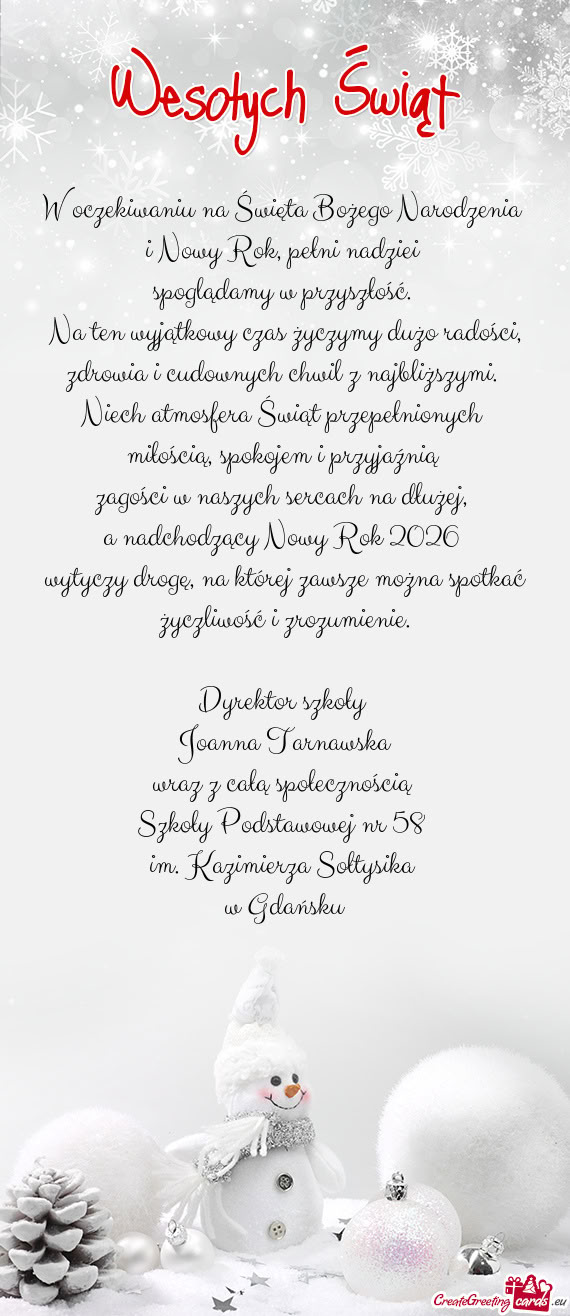 Wesołych Świąt
W oczekiwaniu na Święta Bożego Narodzenia
i Nowy Rok, pełni nadziei
spoglądamy w przyszłość.
Na ten wyjątkowy czas życzymy dużo radości,
zdrowia i cudownych chwil z najbliższymi.
Niech atmosfera Świąt przepełnionych
miłością, spokojem i przyjaźnią
zagości w naszych sercach na dłużej,
a nadchodzący Nowy Rok 2026
wytyczy drogę, na której zawsze można spotkać
życzliwość i zrozumienie.
Dyrektor szkoły
Joanna Tarnawska
wraz z całą społecznością
Szkoły Podstawowej nr 58
im. Kazimierza Sołtysika
w Gdańsku
CreateGreetingcards.eu